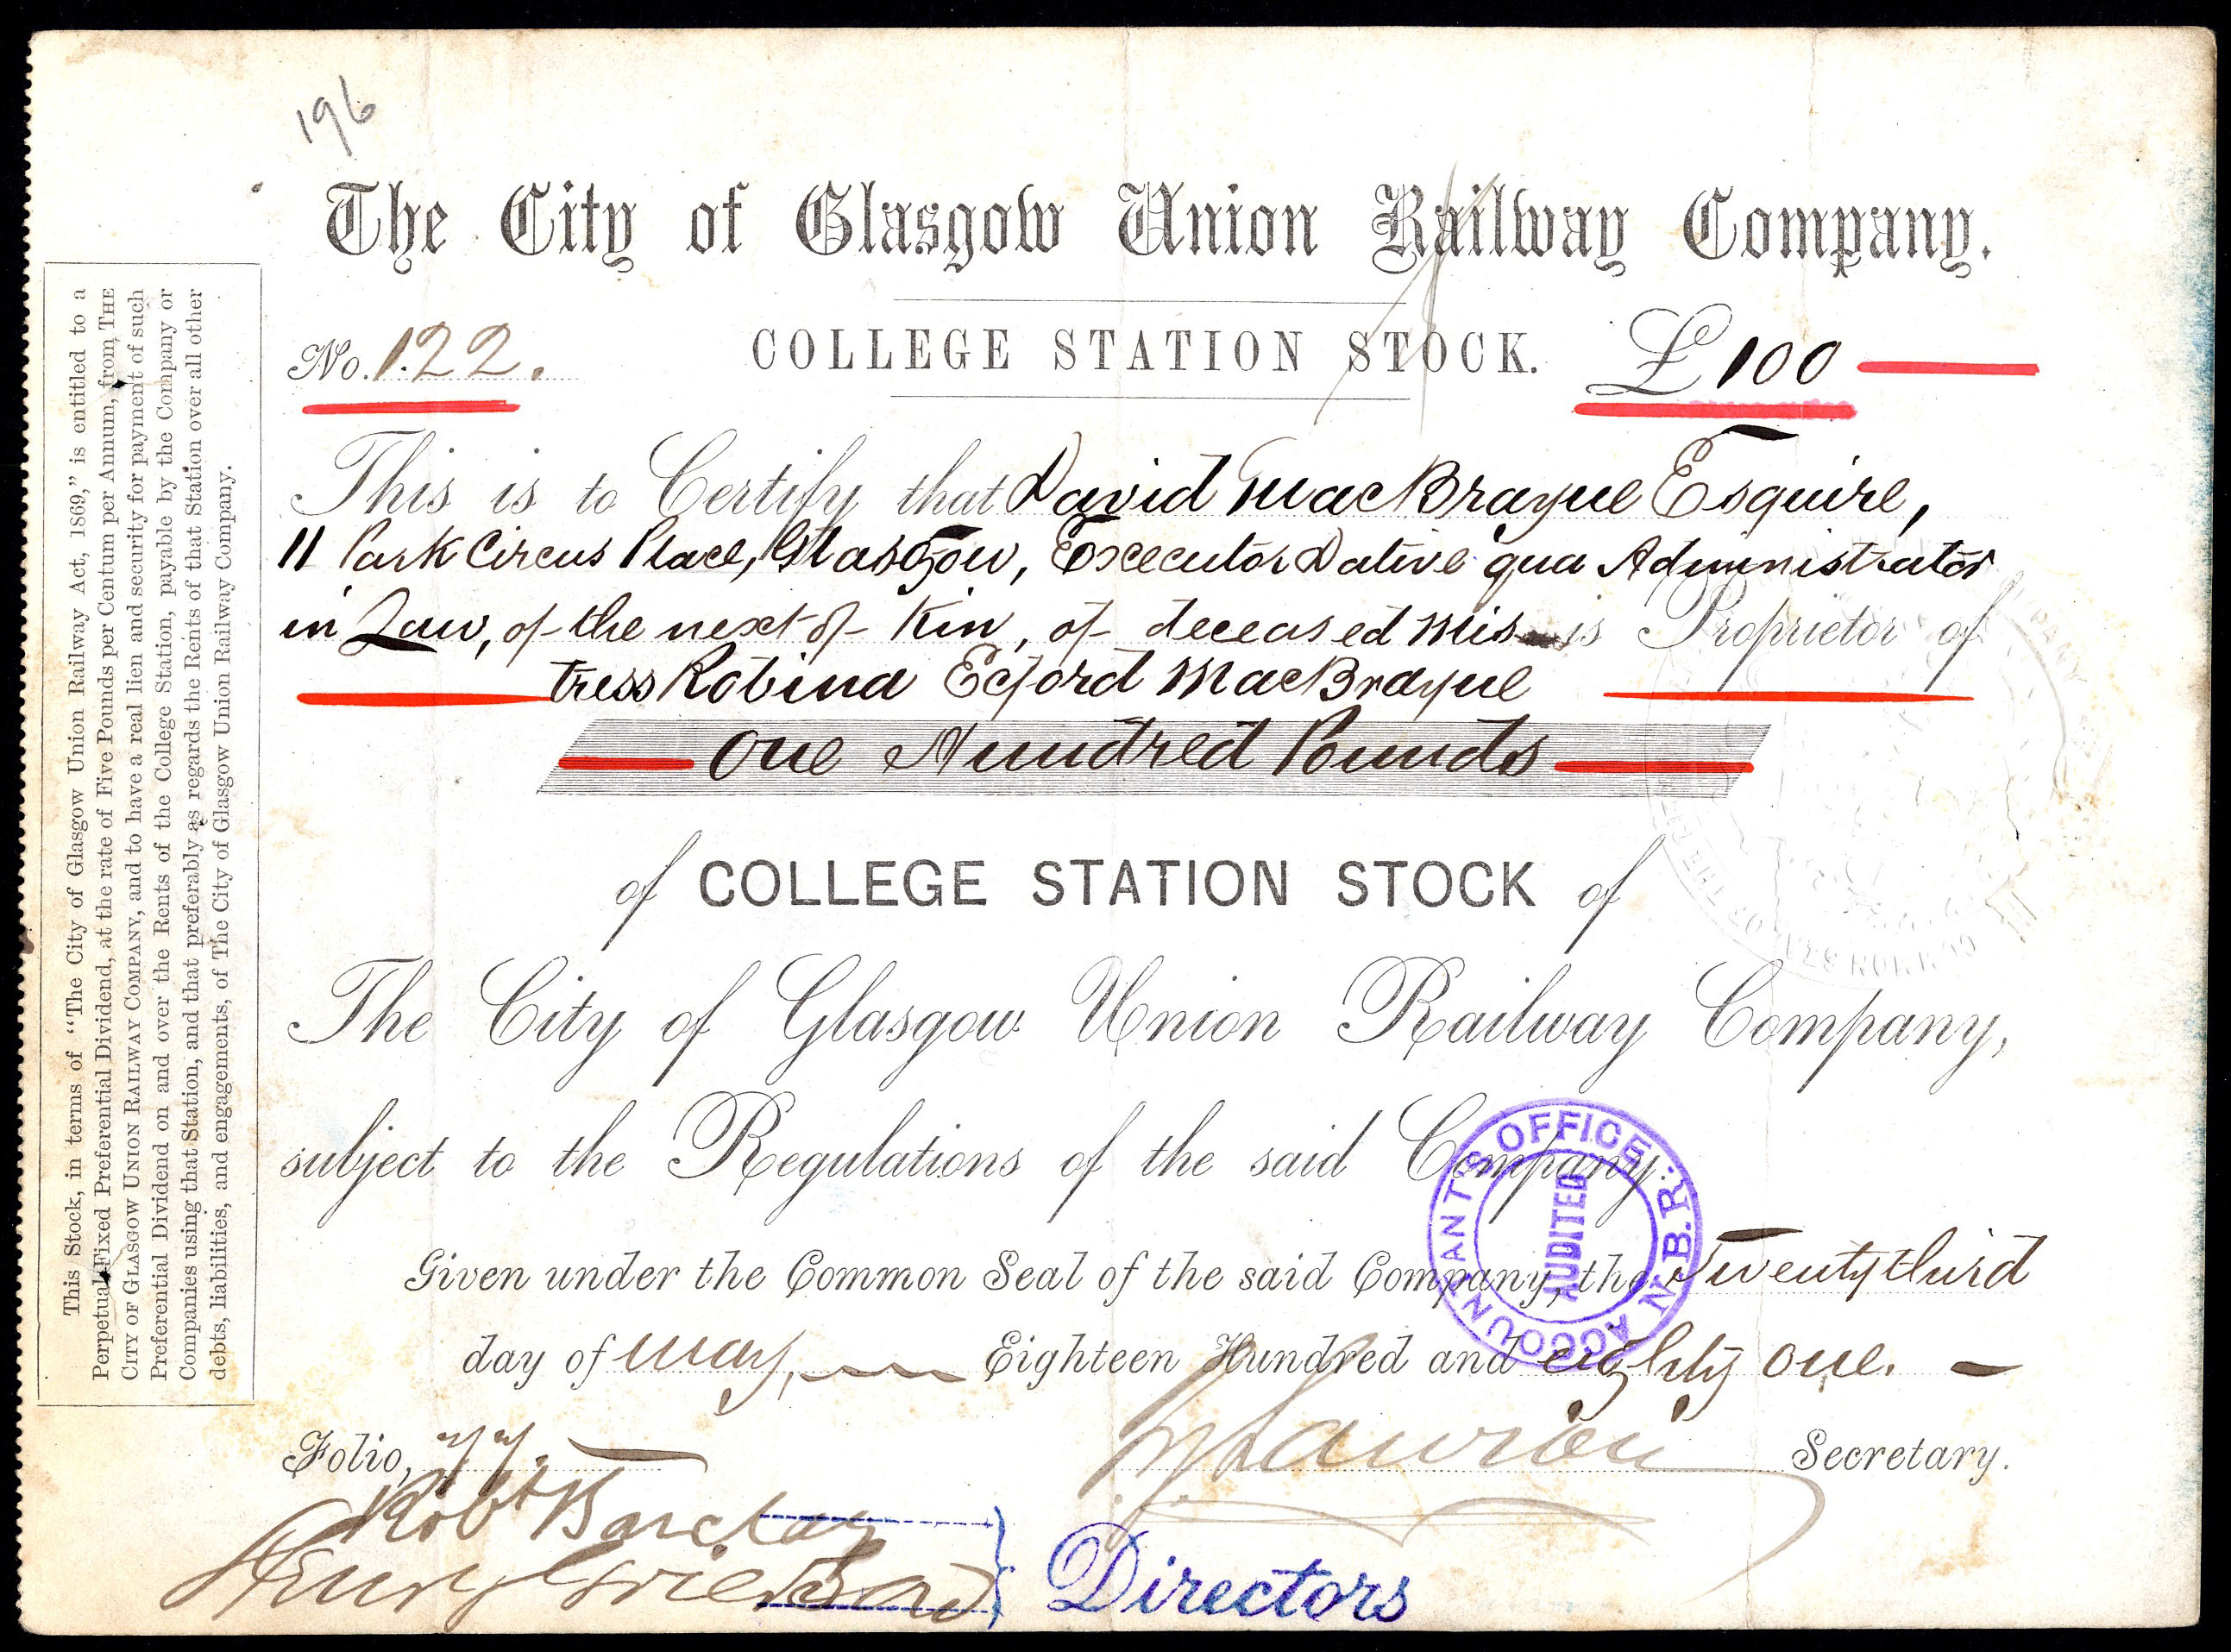 196
The City of Glasgow Union Railway Company.
No. 122.
COLLEGE STATION STOCK.
£100
This is to Certify that David MacBrayne Esquire,
11 Park Circus Place, Glasgow, Executor Dative qua Administrator
in Law, of the next of Kin, of deceased Mis- is Proprietor of
tress Robina Eckford MacBrayne
One Hundred Pounds
of COLLEGE STATION STOCK of
The City of Glasgow Union Railway Company,
subject to the Regulations of the said Company.
Given under the Common Seal of the said Company, the Twenty third
day of May, Eighteen Hundred and eighty one.
Folio,
Secretary.
Robt Barclay
Henry Grierson
Directors
ACCOUNTANT'S OFFICE N.B.R.
AUDITED
This Stock, in terms of "The City of Glasgow Union Railway Act, 1869," is entitled to a
Perpetual Fixed Preferential Dividend, at the rate of Five Pounds per Centum per Annum, from THE
CITY OF GLASGOW UNION RAILWAY COMPANY, and to have a real lien and security for payment of such
Preferential Dividend on and over the Rents of the College Station, payable by the Company or
Companies using that Station, and that preferably as regards the Rents of that Station over all other
debts, liabilities, and engagements, of The City of Glasgow Union Railway Company.